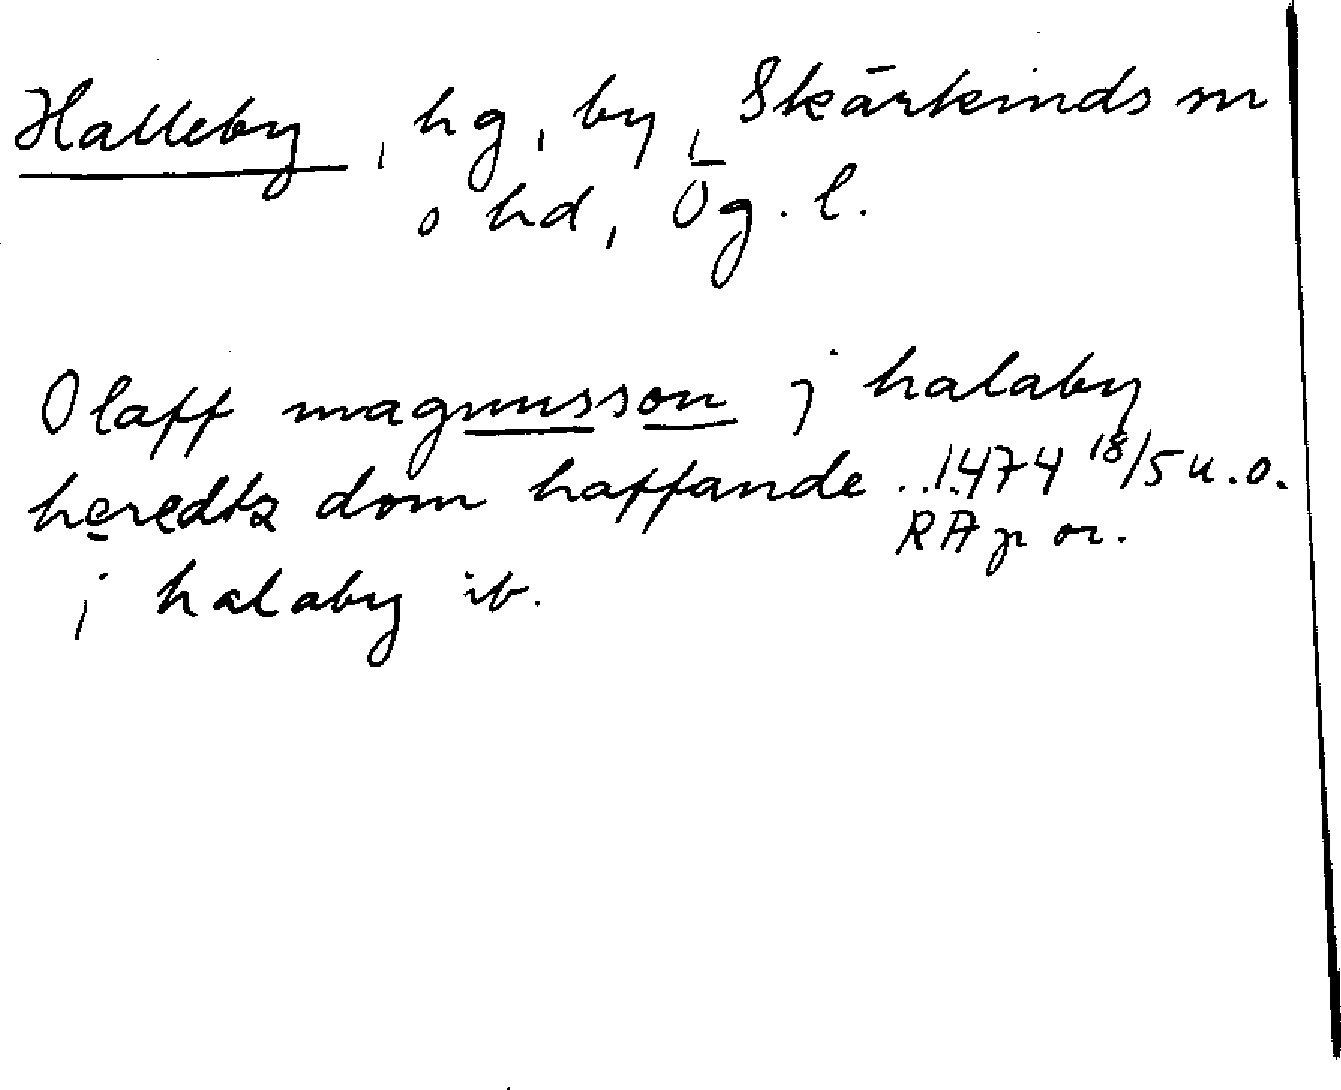 Halleby, hg, by, Skärkinds sn
o hd, Ög. l.
Olaff magnusson j halaby
heredtz dom haffande .. 1474 18/5 u.o.
RA p or.
j halaby ib.